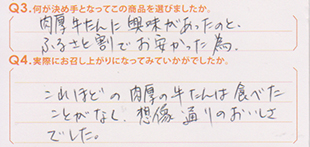 Q3.何が決め手となってこの商品を選びましたか。
肉厚牛たんに興味があったのと、
ふるさと割でお安かった為。
Q4.実際にお召し上がりになってみていかがでしたか。
これほどの肉厚の牛たんは食べた
ことがなく、想像通りのおいしさ
でした。